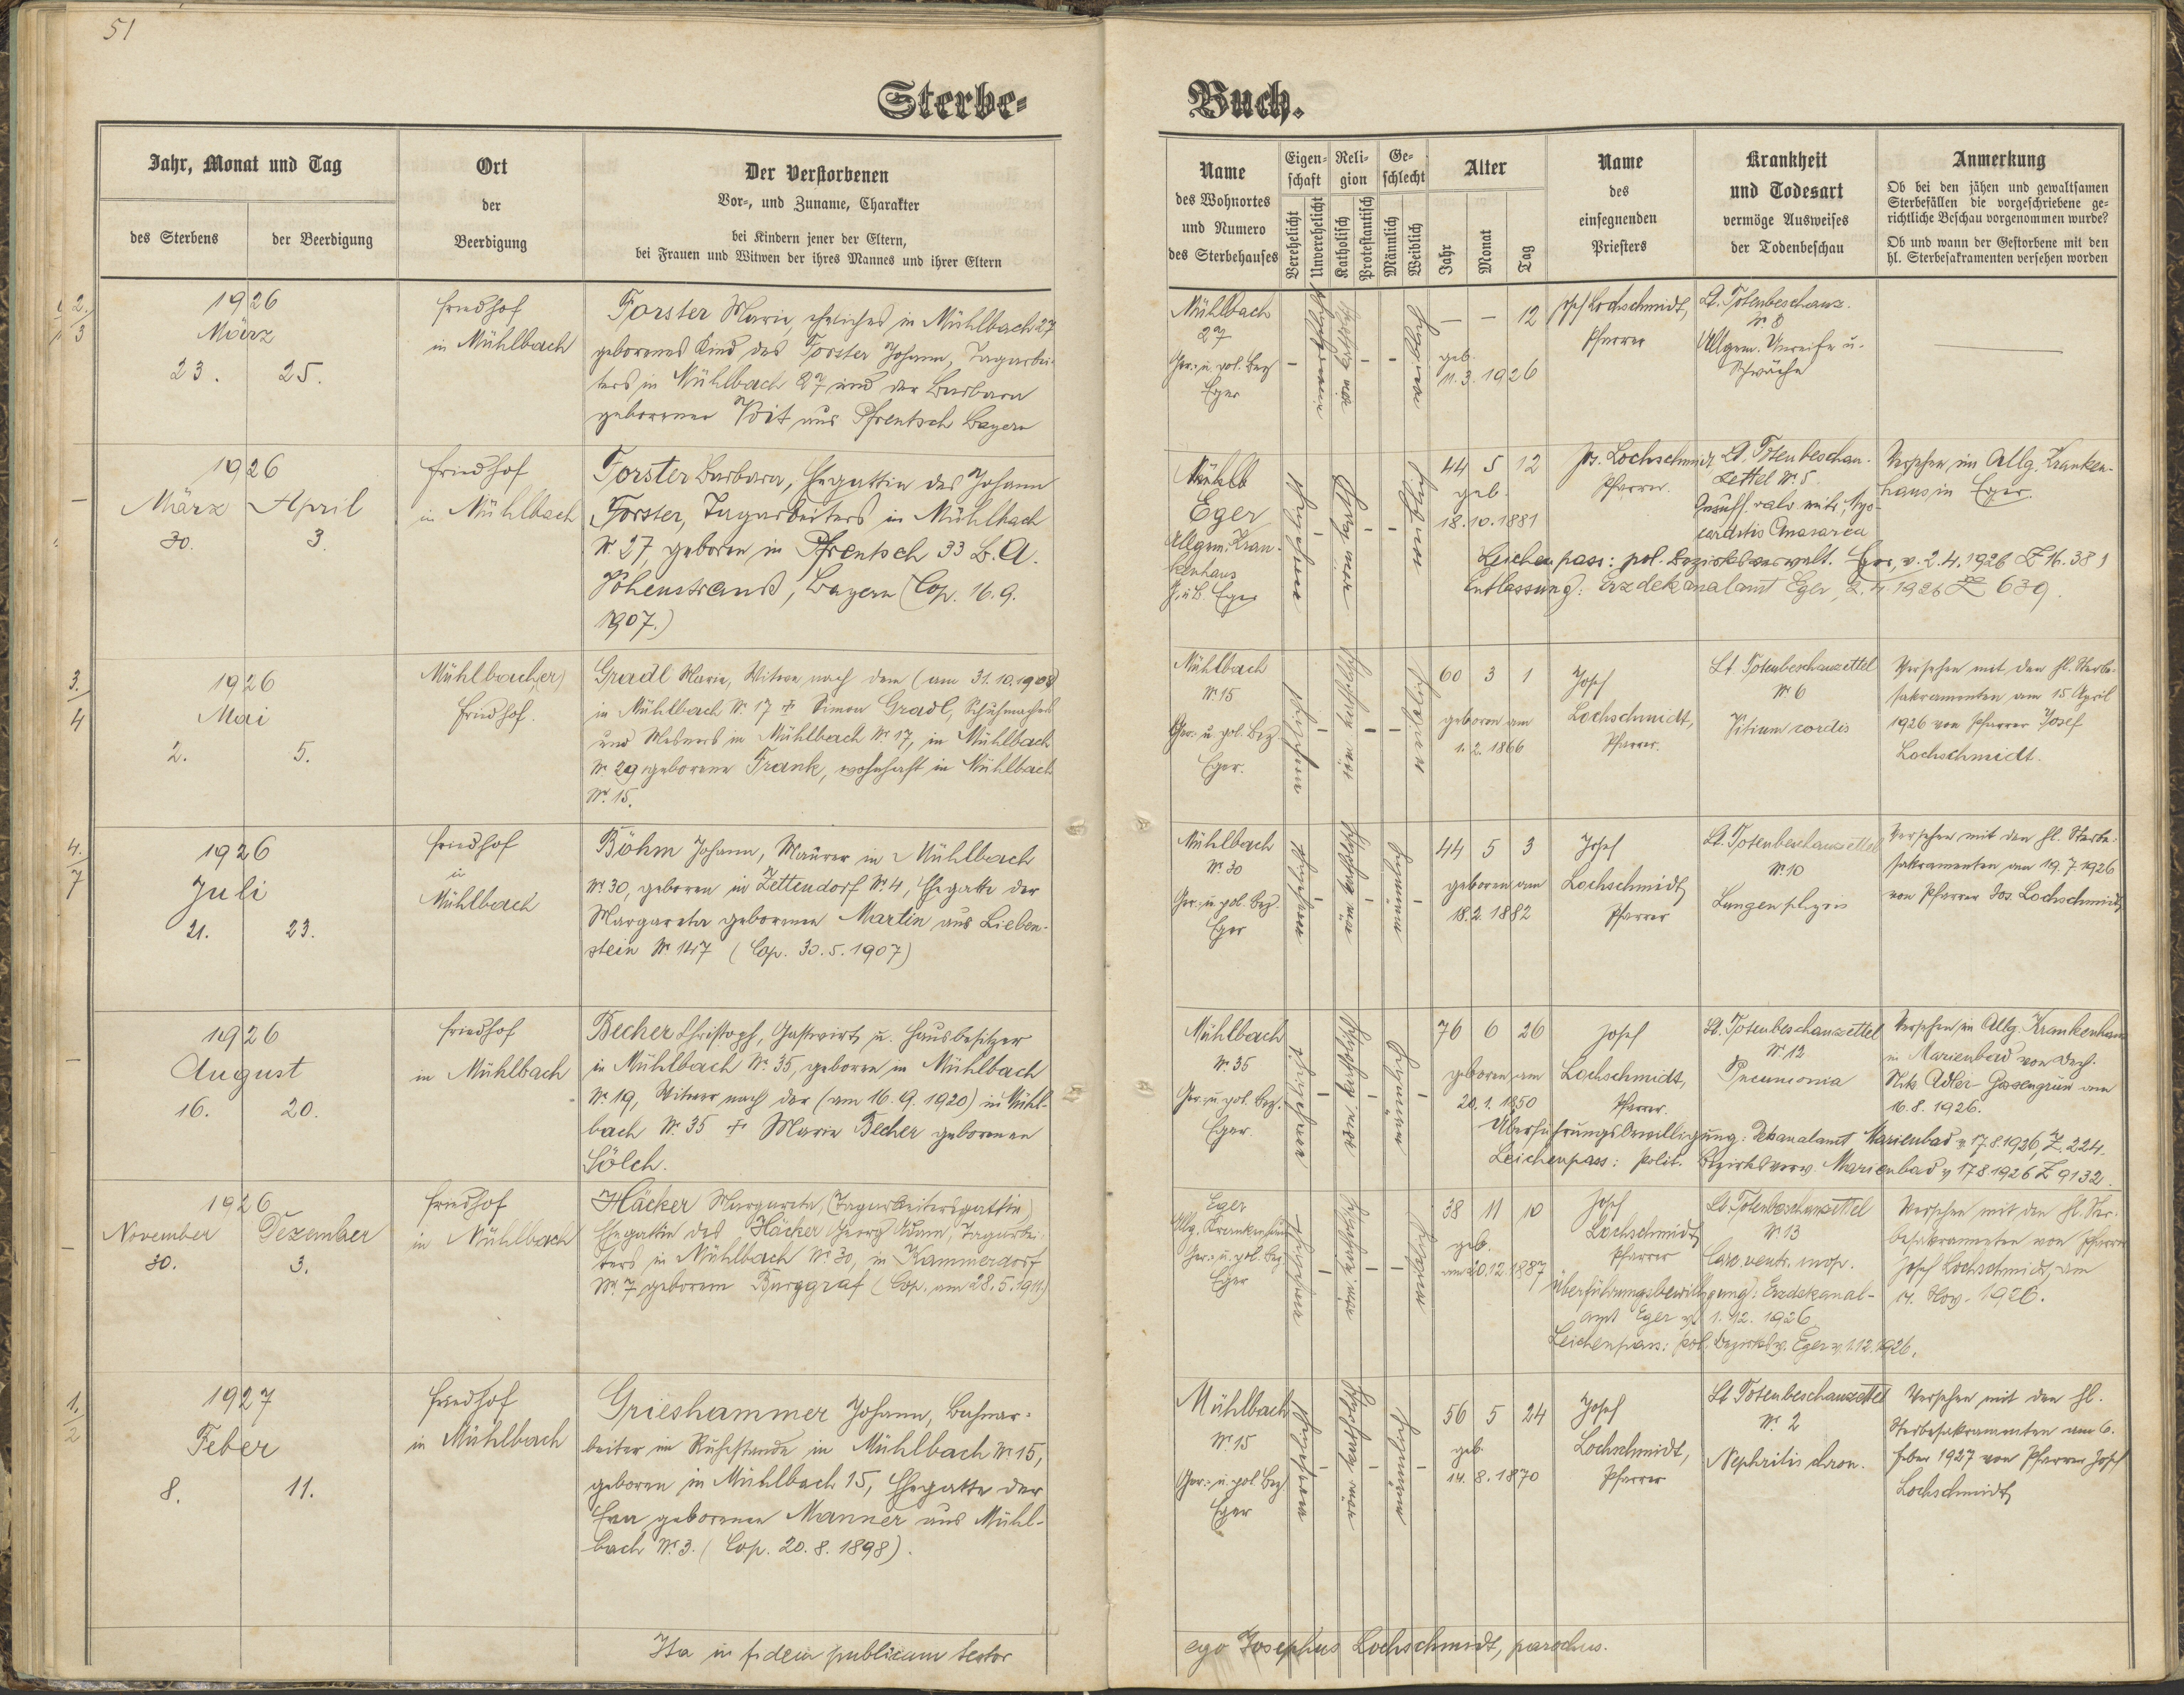 51
Sterbe-
Buch.
Jahr, Monat und Tag
des Sterbens
der Beerdigung
Ort
der
Beerdigung
Der Verstorbenen
Vor-, und Zuname, Charakter
bei Kindern jener der Eltern,
bei Frauen und Witwen der ihres Mannes und ihrer Eltern
Name
des Wohnortes
und Numero
des Sterbehauses
Eigen-
schaft
Verehelicht
Unverehelicht
Reli-
gion
Katholisch
Protestantisch
Ge-
schlecht
Männlich
Weiblich
Alter
Jahr
Monat
Tag
Name
des
einsegnenden
Priesters
Krankheit
und Todesart
vermöge Ausweises
der Todenbeschau
Anmerkung
Ob bei den jähen und gewaltsamen
Sterbefällen die vorgeschriebene ge-
richtliche Beschau vorgenommen wurde?
Ob und wann der Gestorbene mit den
hl. Sterbesakramenten versehen worden
2.
3
1926
März
23. 25.
Friedhof
in Mühlbach
Forster Marie, eheliches in Mühlbach 27
geborenes Kind des Forster Johann, Tagarbei-
ters in Mühlbach 27 und der Barbara
geborenen Voit aus Pfrentsch Bayern
Mühlbach
27
Ger.- u. pol. Bez
Eger
— — 12
geb.
11. 3. 1926
Lochschmidt,
Pfarrer
Lt. Totenbeschauz.
Nr 3
Allgem. Unreife u.
Schwäche
1926
März April
30. 3.
Friedhof
in Mühlbach
Forster Barbara, Ehegattin des Johann
Forster, Tagarbeiters in Mühlbach
Nr. 27, geboren in Pfrentsch 33 B. A.
Vohenstrauß, Bayern (Cop. 16. 9.
1907.)
Mühlb
Eger
Allgem. Kran-
kenhaus
G. u. B. Eger
44 5 12
geb.
18. 10. 1881
Jos. Lochschmidt
Pfarrer.
Lt. Totenbeschau-
zettel Nr. 5.
Insuff. valv. mitr., Myo-
carditis Anasarca
Versehen im Allg. Kranken-
haus in Eger.
Leichenpass: pol. Bezirksverwalt. Eger, v. 2. 4. 1926 Z 16.381
Entlassung: Erzdekanalamt Eger, 2. 4. 1926 Z 639.
3.
4
1926
Mai
2. 5.
Mühlbach(er)
Friedhof.
Gradl Marie, Witwe nach dem (am 31. 10. 1908)
in Mühlbach Nr. 17 † Simon Gradl, Schuhmachers
und Mesners in Mühlbach Nr 17, in Mühlbach
Nr 29 geborene Frank, wohnhaft in Mühlbach
Nr. 15.
Mühlbach
Nr 15
Ger.- u. pol. Bez
Eger.
60 3 1
geboren am
1. 2. 1866
Josef
Lochschmidt,
Pfarrer.
Lt. Totenbeschauzettel
Nr 6
Vitium cordis
Versehen mit den hl. Sterbe-
sakramenten am 15 April
1926 von Pfarrer Josef
Lochschmidt.
4.
7
1926
Juli
21. 23.
Friedhof
in
Mühlbach
Böhm Johann, Maurer in Mühlbach
Nr. 30, geboren in Zettendorf Nr. 4, Ehegatte der
Margareta geborenen Martin aus Lieben-
stein Nr 147 (Cop. 30. 5. 1907)
Mühlbach
Nr. 30
Ger.- u. pol. Bez.
Eger
44 5 3
geboren am
18. 2. 1882
Josef
Lochschmidt
Pfarrer
Lt. Totenbeschauzettel
Nr 10
Lungenphtysis
Versehen mit den hl. Sterbe-
sakramenten am 19. 7. 1926
von Pfarrer Jos. Lochschmidt
1926
August
16. 20.
Friedhof
in Mühlbach
Becher Christoph, Gastwirt u. Hausbesitzer
in Mühlbach Nr. 35, geboren in Mühlbach
Nr 19, Witwer nach der (am 16. 9. 1920) in Mühl-
bach Nr. 35 † Marie Becher geborenen
Sölch.
Mühlbach
Nr. 35
Ger.- u. pol. Bez.
Eger.
76 6 26
geboren am
20. 1. 1850
Josef
Lochschmidt,
Pfarrer.
Lt. Totenbeschauzettel
Nr. 12
Pneumonia
Versehen im Allg. Krankenhaus
in Marienbad von
Adler
16. 8. 1926.
Überführungsbewilligung: Dekanalamt Marienbad v. 17.8.1926, Z. 224.
Leichenpass: polit. Bezirksverw. Marienbad v. 17.8.1926 Z 9132.
1926
November Dezember
30. 3.
Friedhof
in Mühlbach
Häcker Margareta, (Tagarbeitersgattin)
Ehegattin des Häcker Georg Adam, Tagarbei-
ters in Mühlbach Nr. 30, in Kammerdorf
Nr. 7 geborene Burggraf (Cop. am 28. 5. 1911)
Eger
Allg. Krankenhaus
Ger.- u. pol. Bez
Eger
38 11 10
geb.
am 20. 12. 1887
Josef
Lochschmidt
Pfarrer
Lt. Totenbeschauzettel
Nr. 13
Carc. ventr. inop.
Versehen mit den hl. Ster-
besakramenten von Pfarrer
Josef Lochschmidt, am
Nov. 1926.
Überführungsbewilligung: Erzdekanal-
amt Eger v. 1. 12. 1926
Leichenpass: pol. Bezirksv. Eger v. 1.12.1926.
1.
2
1927
Feber
8. 11.
Friedhof
in Mühlbach
Grieshammer Johann, Bahnar-
beiter im Ruhestande in Mühlbach Nr 15,
geboren in Mühlbach 15, Ehegatte der
Eva geborenen Manner aus Mühl-
bach Nr. 3. (Cop. 20. 8. 1898).
Mühlbach
Nr. 15
Ger.- u. pol. Bez
Eger
56 5 24
geb.
14. 8. 1870
Josef
Lochschmidt,
Pfarrer
Lt Totenbeschauzettel
Nr. 2
Nephritis chron.
Versehen mit den hl.
Sterbesakramenten am 6.
Feber 1927 von Pfarrer Josef
Lochschmidt
Ita in fidem publicam testor
ego Josephus Lochschmidt, parochus.